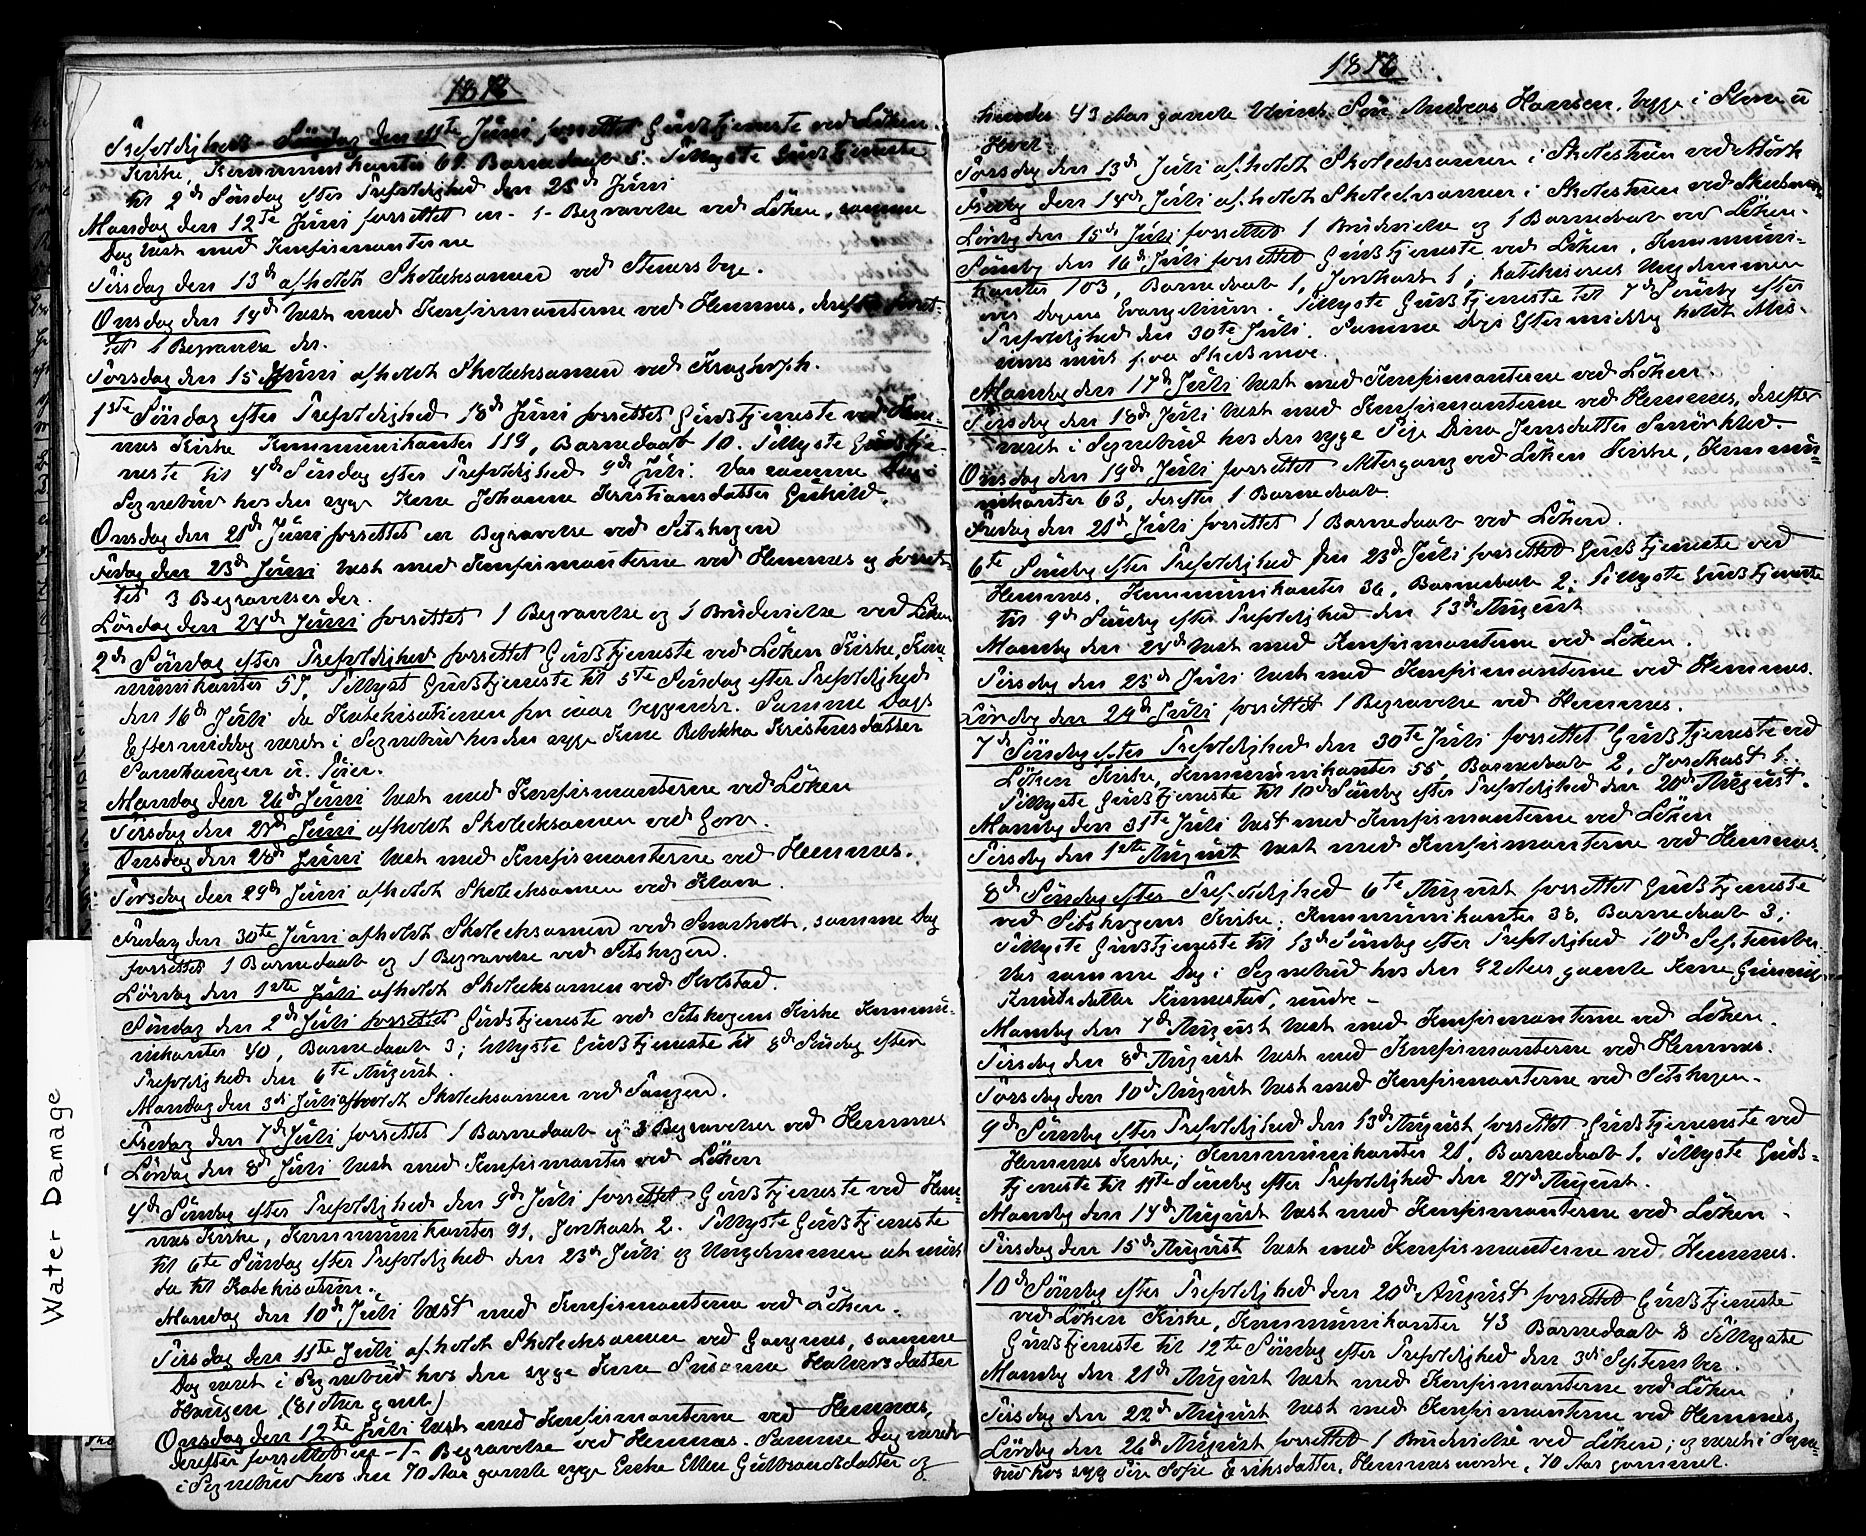 1876
Trefoldigheds-Söndag den 11te Júni forrettet Gúdstjeneste ved Löken
Kirke, Kommunikanter 69. Barnedaab 5. Tillyste Gúdstjeneste
til 2d Söndag efter Trefoldighed den 25d Júni
Mandag den 12te Júni forrettet en -1- Begravelse ved Löken, samme
Dag læst med Konfirmanterne
Tirsdag den 13d afholdt Skoleeksamen ved
Onsdag den 14d læst med Konfirmanterne ved Hemnes, derefter forret-
tet 1 Begravelse der.
Torsdag den 15d Júni afholdt Skoleeksamen ved Kragtorph.
1ste Söndag efter Trefoldighed 18d Júni forrettet Gúdstjeneste ved Hem-
nes Kirke Kommunikanter 119, Barnedaab 10. Tillyste Gúdstje-
neste til 4d Söndag efter Trefoldighed 9d Júli. Var samme Dag i
Sognebúd hos den syge Kone Johanne Kristiansdatter
Onsdag den 21d Júni forrettet en Begravelse ved Setskogen
Fredag den 23d Júni læst med Konfirmanterne ved Hemnes og forret-
tet 3 Begravelser der.
Lörsdag den 24d Júni forrettet 1 Begravelse og 1 Brúdevielse ved Löken
2d Söndag efter Trefoldighed forrettet Gúdstjeneste ved Löken Kirke, Kom-
múnikanter 57. Tillyst Gúdstjeneste til 5te Söndag efter Trefoldighed
den 16d Júli da Katekisationen for iaar begynder. Samme Dags
Eftermiddag været i Sognebúd hos den syge Kone Rebekka Kristensdatter
Sandhaúgen
Mandag den 26d Júni læst med Konfirmanterne ved Löken
Tirsdag den 27d Júni afholdt Skoleeksamen ved
Onsdag den 28d Júni læst med Konfirmanterne ved Hemnes.
Torsdag den 29d Júni afholdt Skoleeksamen ved
Fredag den 30te Júni afholdt Skoleeksamen ved Smarholt, samme Dag
forrettet 1 Barnedaab og 1 Begravelse ved Setskogen.
Lördag den 1ste Júli afholdt Skoleeksamen ved Kolstad.
Söndag den 2d Júli forrettet Gúdstjeneste ved Setskogens Kirke Kommú-
nikanter 40, Barnedaab 3; tillyste Gúdstjeneste til 8d Söndag efter
Trefoldighed den 6te Aúgúst.
Mandag den 3di Júli afholdt Skoleeksamen ved Tangen.
Fredag den 7d Júli forrettet 1 Barnedaab og 3 Begravelser ved Hemnes
Lördag den 8d Júli læst med Konfirmanter ved Löken
4d Söndag efter Trefoldighed den 9d Júli forrettet Gúdstjeneste ved Hem-
nes Kirke, Kommúnikanter 91, Jordkast 2. Tillyste Gúdstjeneste
til 6te Söndag efter Trefoldighed den 23d Júli og Ungdommen at möde
da til Katekisation.
Mandag den 10d Júli læst med Konfirmanterne ved Löken.
Tirsdag den 11te Júli afholdt Skoleeksamen ved samme
Dag været i Sognebúd hos den syge Kone Súsanne Halvorsdatter
Haúgen (81 Aar gml)
Onsdag den 12te Júli læst med Konfirmanterne ved Hemnes,
derefter forrettet en -1- Begravelse ved Hemnes. Samme Dag været
i Sognebúd hos den 70 Aar gamle syge Enke Ellen Gúlbrandsdatter og
1876
hendes 43 Aar gamle Sön Andreas Hansen, begge i
Torsdag den 13d Júli afholdt Skoleeksamen i Skolestúen ved Mörk
Fredag den 14d Júli afholdt Skoleeksamen i Skolestúen ved
Lördag den 15d Júli forrettet 1 Brúdevielse og 1 Barnedaab ved Löken.
Söndag den 16d Júli forrettet Gúdstjeneste ved Löken, Kommúni-
kanter 103, Barnedaab 1, Jordkast 1; katekiseret Ungdommen
over Dagens Evangeliúm. Tillyste Gúdstjeneste til 7d Söndag efter
Trefoldighed den 30te Júli. Samme Dags Eftermiddag holdt Mis-
sionsmöde paa Skedsmoe.
Mandag den 17d Júli læst med Konfirmanterne ved Löken.
Tirsdag den 18d Júli læst med Konfirmanterne ved Hemnes, derefter
været i Sognebúd hos den syge Pige Dina Jensdatter
Onsdag den 19d Júli forrettet Altergang ved Löken Kirke, Kommú-
nikanter 63, derefter 1 Barnedaab
Fredag den 21d Júli forrettet 1 Barnedaab ved Löken.
6te Söndag efter Trefoldighed den 23d Júli forrettet Gúdstjeneste ved
Hemnes, Kommúnikanter 36, Barnedaab 2; Tillyste Gúdstjeneste
til 9d Söndag efter Trefoldighed den 13d Aúgúst
Mandag den 24d læst med Konfirmanterne ved Löken.
Tirsdag den 25d Júli læst med Konfirmanterne ved Hemnes.
Löndag den 29d Júli forrettet 1 Begravelse ved Hemnes.
7d Söndag efter Trefoldighed den 30te Júli forrettet Gúdstjeneste ved
Löken Kirke, Kommúnikanter 55, Barnedaab 2, Jordkast 1.
Tillyste Gúdstjeneste til 10d Söndag efter Trefoldighed den 20d Aúgúst.
Mandag den 31te Júli læst med Konfirmanterne ved Löken
Tirsdag den 1ste Aúgúst læst med Konfirmanterne ved Hemnes.
8d Söndag efter Trefoldighed 6te Aúgúst forrettet Gúdstjeneste
ved Setskogens Kirke; Kommúnikanter 38, Barnedaab 3;
Tillyste Gúdstjeneste til 13d Söndag efter Trefoldighed 10d September.
Var samme Dag i Sognebúd hos den 92 Aar gamle Kone
Knúdsdatter Kinnestad, nedre -
Mandag den 7d Aúgúst læst med Konfirmanterne ved Löken.
Tirsdag den 8d Aúgúst læst med Konfirmanterne ved Hemnes.
Torsdag den 10d Aúgúst læst med Konfirmanterne ved Setskogen.
9d Söndag efter Trefoldighed den 13d Aúgúst forrettet Gúdstjeneste ved
Hemnes Kirke; Kommúnikanter 21, Barnedaab 1. Tillyste Gúds-
tjeneste til 11te Söndag efter Trefoldighed den 27d Aúgúst.
Mandag den 14d Aúgúst læst med Konfirmanterne ved Löken.
Tirsdag den 15d Aúgúst læst med Konfirmanterne ved Hemnes.
10d Söndag efter Trefoldighed den 20d Aúgúst forrettet Gúdstjeneste
ved Löken Kirke, Kommúnikanter 43 Barnedaab 8 Tillyste
Gúdstjeneste til 12te Söndag efter Trefoldighed den 3di September.
Mandag den 21d Aúgúst læst med Konfirmanterne ved Löken
Tirsdag den 22d Aúgúst læst med Konfirmanterne ved Hemnes,
Lördag den 26d Aúgúst forrettet 1 Brúdevielse ved Löken; og været i Sogne-
búd hos syg Pige Sofie Eriksdatter, Hemnes nordre, 70 Aar gammel.
Water Damage